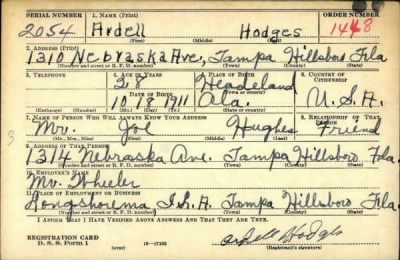 SERIAL NUMBER 1. NAME (Print) ORDER NUMBER
2054 Ardell Hodges 1448
(First) (Middle) (Last)
2. ADDRESS (Print)
1310 Nebraska Ave, Tampa Hillsboro Fla
(Number and street or R. F. D. number) (Town) (County) (State)
3. TELEPHONE 4. AGE IN YEARS 5. PLACE OF BIRTH 6. COUNTRY OF CITIZENSHIP
28 Headland
DATE OF BIRTH (Town or county)
10 18 1911 Ala. U.S.A.
(Exchange) (No.) (Mo.) (Day) (Yr.) (State or country)
7. NAME OF PERSON WHO WILL ALWAYS KNOW YOUR ADDRESS 8. RELATIONSHIP OF THAT PERSON
Mr. Joe Hughes Friend
(Mr., Mrs., Miss) (First) (Middle) (Last)
9. ADDRESS OF THAT PERSON
1314 Nebraska Ave. Tampa Hillsboro Fla.
(Number and street or R. F. D. number) (Town) (County) (State)
10. EMPLOYER'S NAME
Mr. Wheeler
11. PLACE OF EMPLOYMENT OR BUSINESS
Longshorema I.L.A. Tampa Hillsboro Fla.
(Number and street or R. F. D. number) (Town) (County) (State)
I AFFIRM THAT I HAVE VERIFIED ABOVE ANSWERS AND THAT THEY ARE TRUE.
REGISTRATION CARD
D. S. S. Form 1 Ardell Hodges
(Registrant's signature)